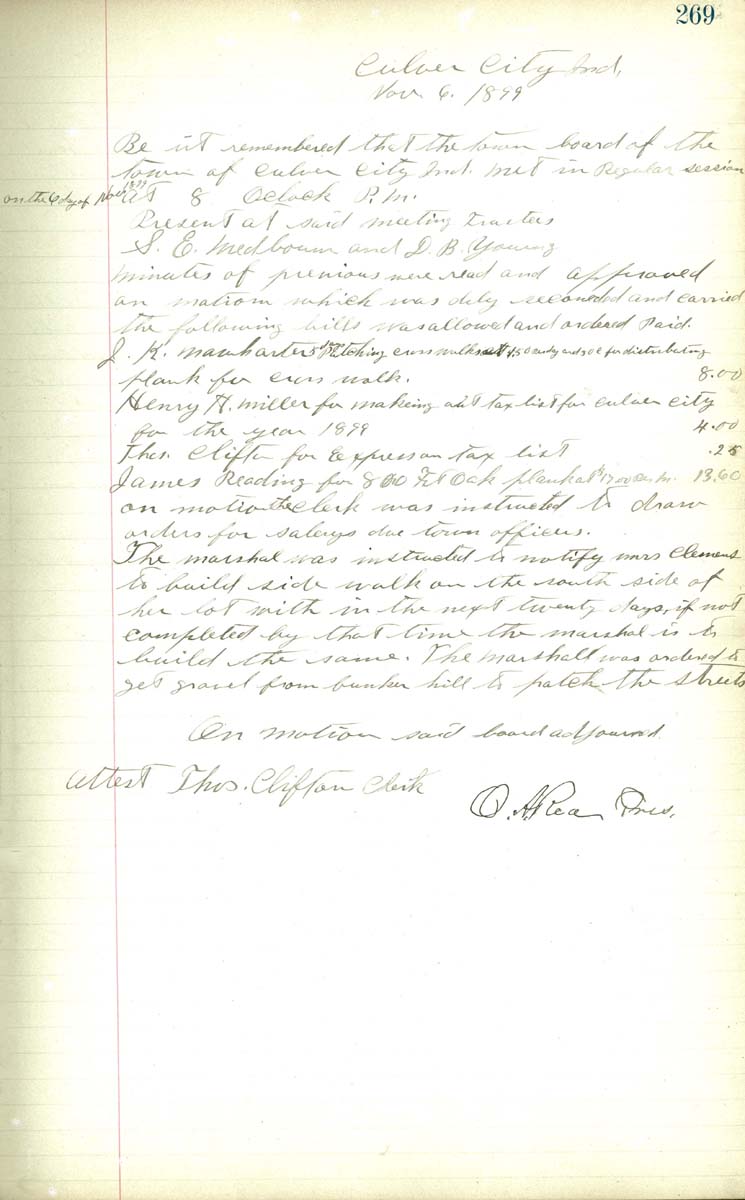 269
Culver City Ind,
Nov. 6. 1899
Be it remembered that the town board of the
town of Culver City Ind. met in Regular session
on the 6 day of Nov 1899 at 8 Oclock P.M.
Present at said meeting Trusters
S. E. Medbourn and D. B. Young
minutes of previous were read and approved
on motiom which was duly seconeded and carried
the following bills was allowed and ordered Paid.
J. K. Mawharter 5 days Patching cross walks at 1.50 a day and 50¢ for distributing
plank for cross walk. 8.00
Henry H. Miller for makeing out tax list for Culver City
for the year 1899 4.00
Thos. Clifton for Express on tax list .25
James Reading for 800 Ft Oak plank at $17.00 per m. 13.60
on motion the Clerk was instructed to draw
orders for salerys due town officers.
The marshal was instructed to notify mrs Clemens
to build side walk on the south side of
her lot with in the next twenty days, if not
completed by that time the marshal is to
build the same. The marshall was ordered to
get gravel from bunker hill to patch the streets
On motion said board adjourned.
Attest Thos. Clifton Clerk
O. A. Rea Pres.